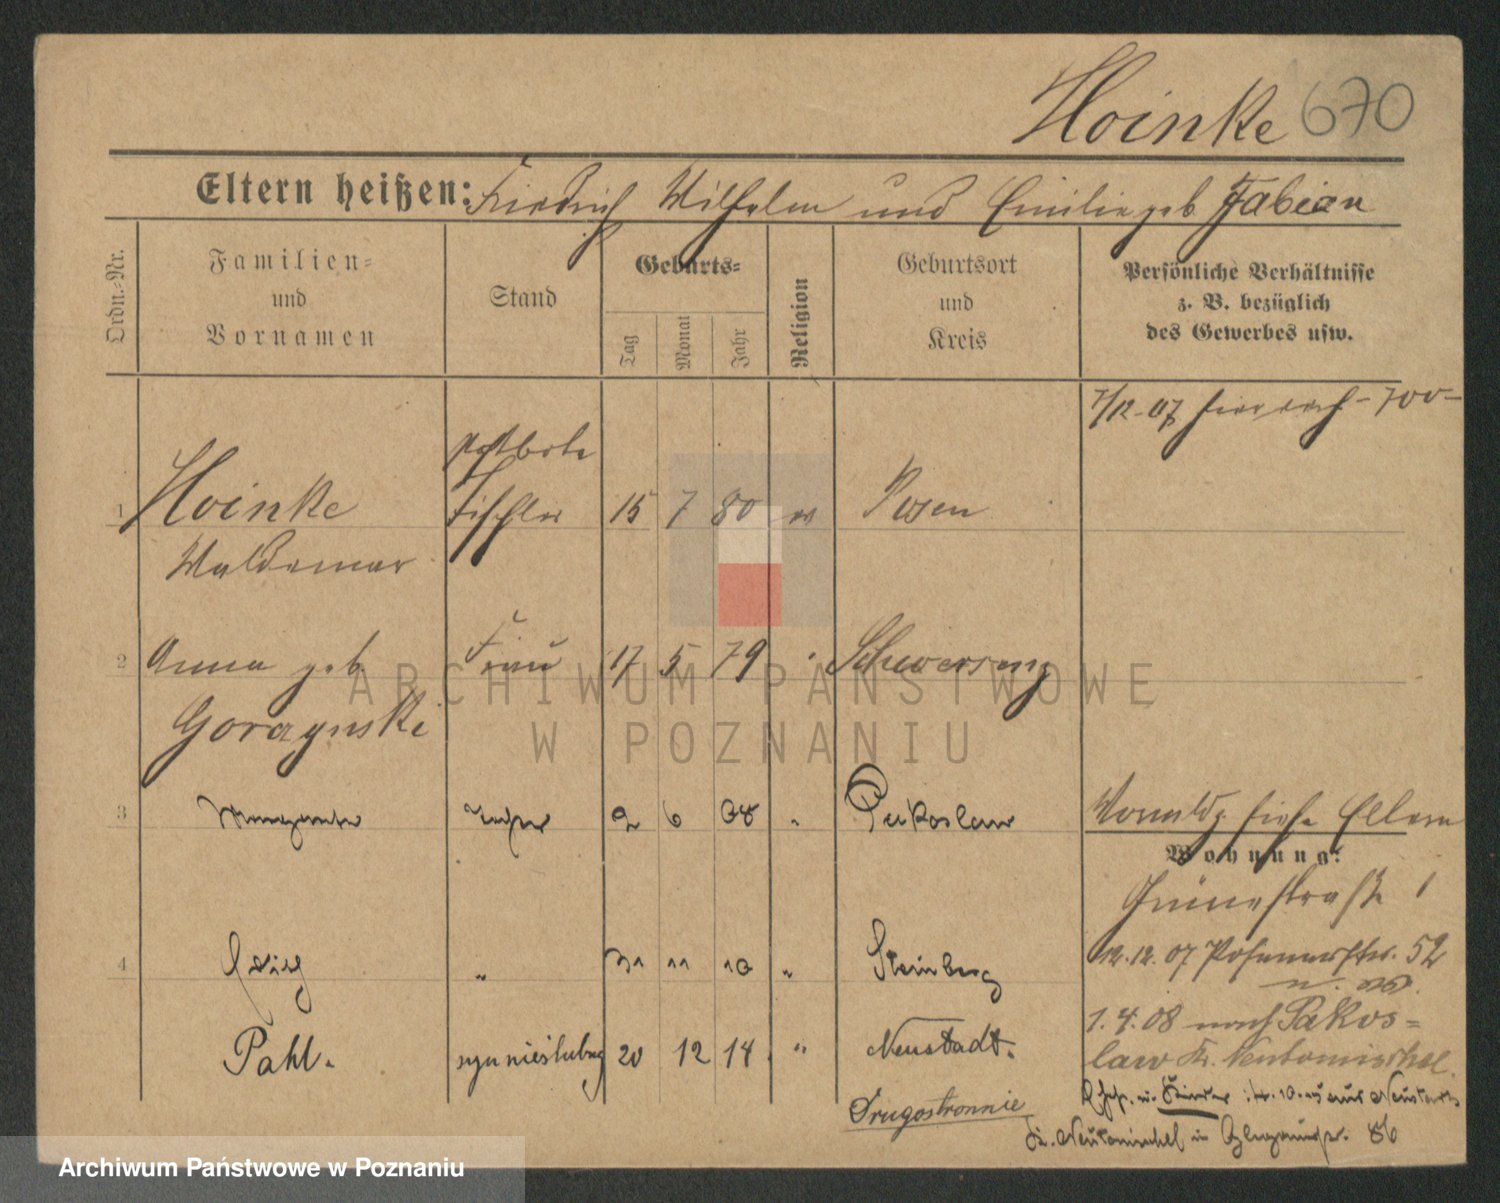 Hoinke 670
Eltern heißen: Friedrich Wilhelm und Emilie geb Fabian
Ordn.-Nr.
Familien-
und
Vornamen
Stand
Geburts-
Tag
Monat
Jahr
Religion
Geburtsort
und
Kreis
Persönliche Verhältnisse
z. B. bezüglich
des Gewerbes usw.
7/12-07 -700-
Postbote
1 Hoinke Tischler 15 7 80 ev Posen
Waldemar
2 Anna geb. Frau 17 5 79 " Schwersenz
Goraynski
3 Margarete Tochter 2 6 08 " Pakoslaw
Vormldg siehe Eltern
Wohnung:
Grünestraße 1
4 " 31 11 10 " Steinberg
12.12.07 Posenerstr. 52
Pahl. syn nieślubny 20 12 14 " Neustadt.
1.4.08 nach Pakos=
law Kr. Neutomischel.
Drugostronnie
Kr. Neutomischel in 86
ARCHIWUM PAŃSTWOWE
W POZNANIU
Archiwum Państwowe w Poznaniu